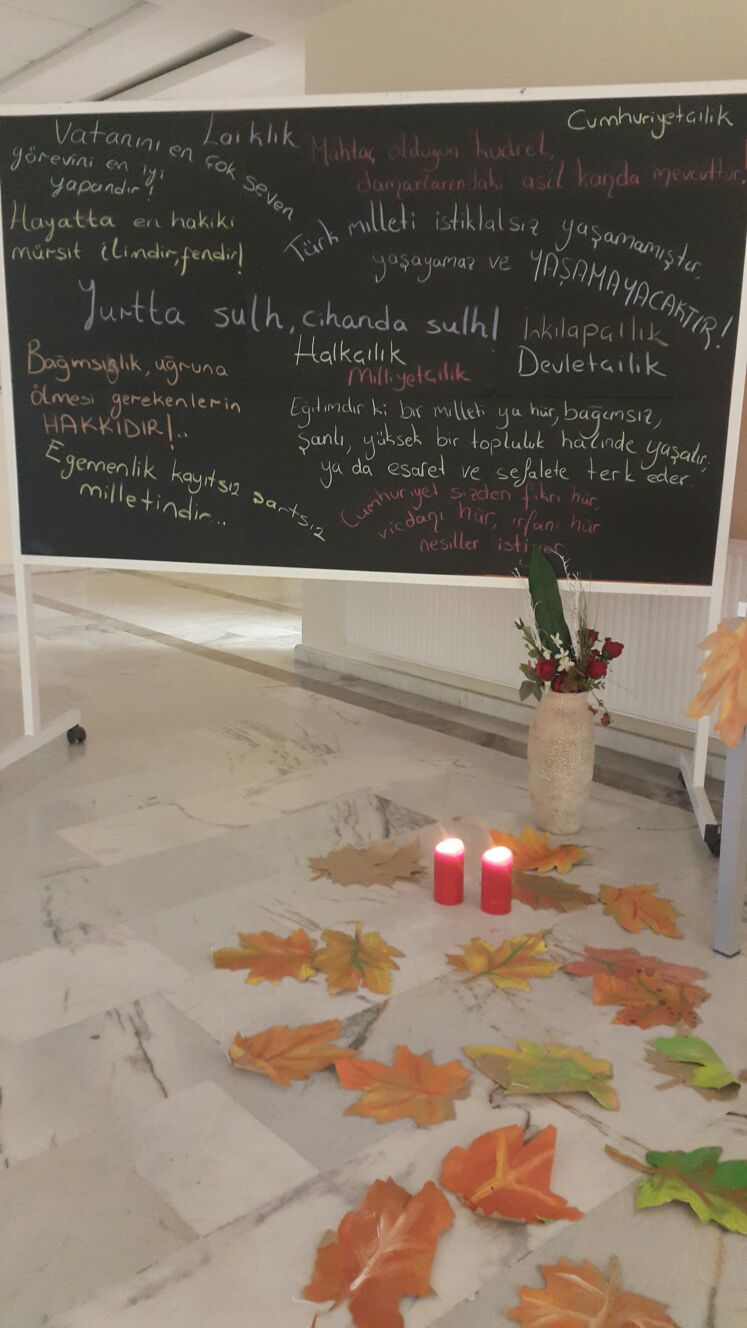 Vatanını en çok seven
görevini en iyi
yapandır!
Laiklik
Cumhuriyetcilik
Muhtaç olduğun kudret,
damarlarındaki asil kanda mevcuttur.
Hayatta en hakiki
mürşit ilimdir, fendir!
Türk milleti istiklalsız yaşamamıştır,
yaşayamaz ve YAŞAMAYACAKTIR!
Yurtta sulh, cihanda sulh!
İnkılapçılık
Halkçılık
Devletcilik
Milliyetçilik
Bağımsızlık, uğruna
ölmesi gerekenlerin
HAKKIDIR!..
Eğitimdir ki bir milleti ya hür, bağımsız,
şanlı, yüksek bir topluluk halinde yaşatır;
ya da esaret ve sefalete terk eder.
Egemenlik kayıtsız şartsız
milletindir..
Cumhuriyet sizden fikri hür,
vicdanı hür, irfanı hür
nesiller istiyor